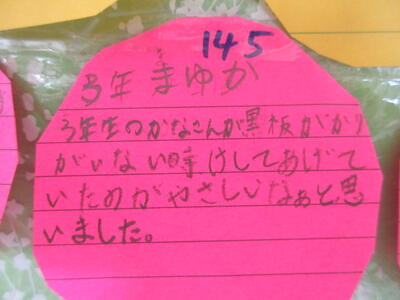 145
3年 まゆか
3年生のかなさんが黒板がかり
がいない時けしてあげて
いたのがやさしいなぁと思
いました。